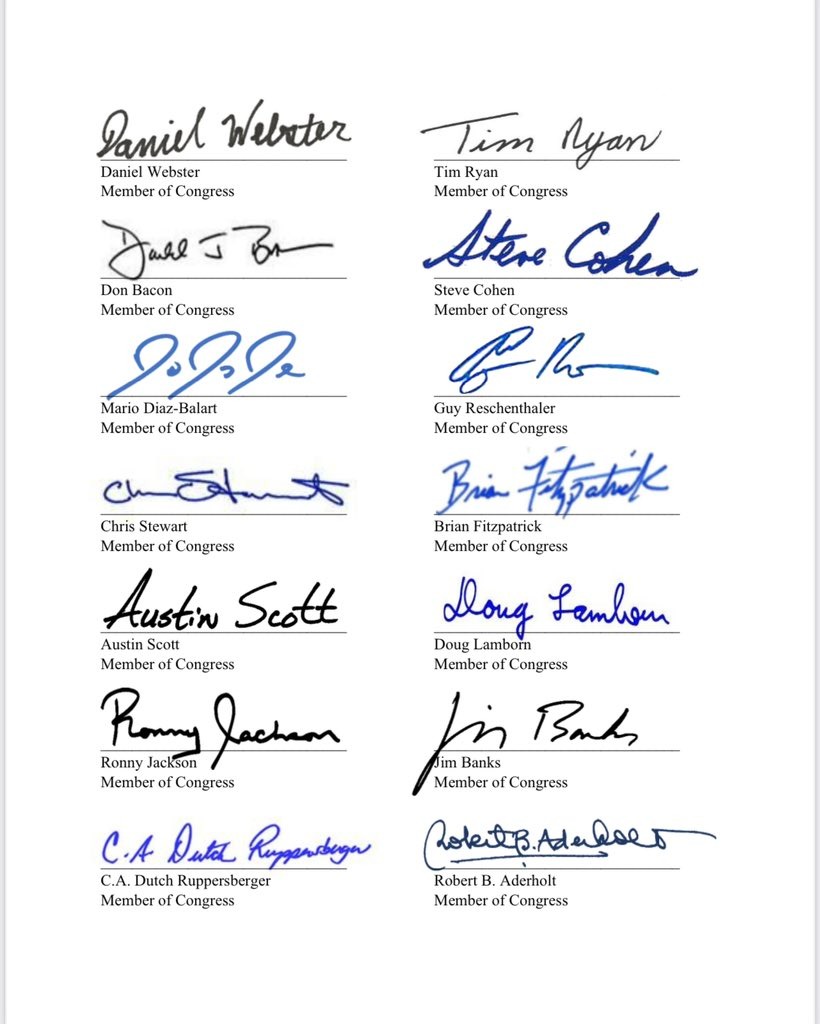 Daniel Webster
Tim Ryan
Daniel Webster
Member of Congress
Tim Ryan
Member of Congress
Steve Cohen
Don Bacon
Member of Congress
Steve Cohen
Member of Congress
Mario Diaz-Balart
Member of Congress
Guy Reschenthaler
Member of Congress
Brian Fitzpatrick
Chris Stewart
Member of Congress
Brian Fitzpatrick
Member of Congress
Austin Scott
Doug Lamborn
Austin Scott
Member of Congress
Doug Lamborn
Member of Congress
Ronny Jackson
Jim Banks
Ronny Jackson
Member of Congress
Jim Banks
Member of Congress
C.A Dutch Ruppersberger
Robert B. Aderholt
C.A. Dutch Ruppersberger
Member of Congress
Robert B. Aderholt
Member of Congress